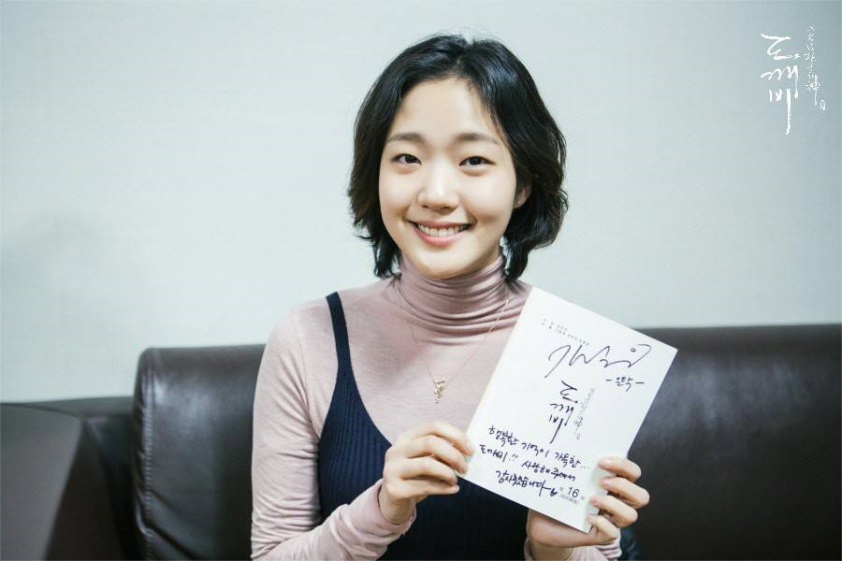 도깨비
도깨비
-은탁-
행복한 기억이 가득한...
도깨비!! 사랑해주셔서
감사했습니다
16